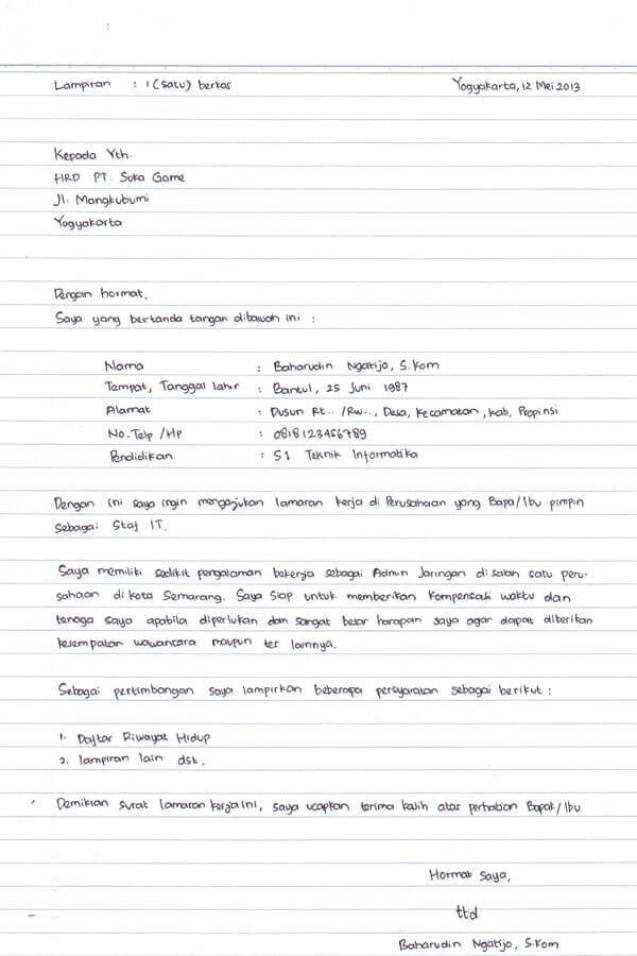 Lampiran : 1 (satu) berkas Yogyakarta, 12 Mei 2013
Kepada Yth.
HRD PT. Suka Game
Jl. Mangkubumi
Yogyakarta
Dengan hormat,
Saya yang bertanda tangan dibawah ini :
Nama : Baharudin Ngatijo, S.Kom
Tempat, Tanggal lahir : Bantul, 25 Juni 1987
Alamat : Dusun Rt.. /Rw.., Desa, Kecamatan, Kab, Propinsi
No. Telp /HP : 0818123456789
Pendidikan : S1 Teknik Informatika
Dengan ini saya ingin mengajukan lamaran kerja di Perusahaan yang Bapa/Ibu pimpin
Sebagai Staf IT.
Saya memiliki sedikit pengalaman bekerja sebagai Admin Jaringan di salah satu peru-
sahaan di kota Semarang. Saya Siap untuk memberikan kompensasi waktu dan
tenaga saya apabila diperlukan dan sangat besar harapan saya agar dapat diberikan
kesempatan wawancara maupun tes lainnya.
Sebagai pertimbangan saya lampirkan beberapa persyaratan sebagai berikut :
1. Daftar Riwayat Hidup
2. lampiran lain dsb.
Demikian surat lamaran kerja ini, saya ucapkan terima kasih atas perhatian Bapak/Ibu
Hormat Saya,
ttd
Baharudin Ngatijo, S.Kom